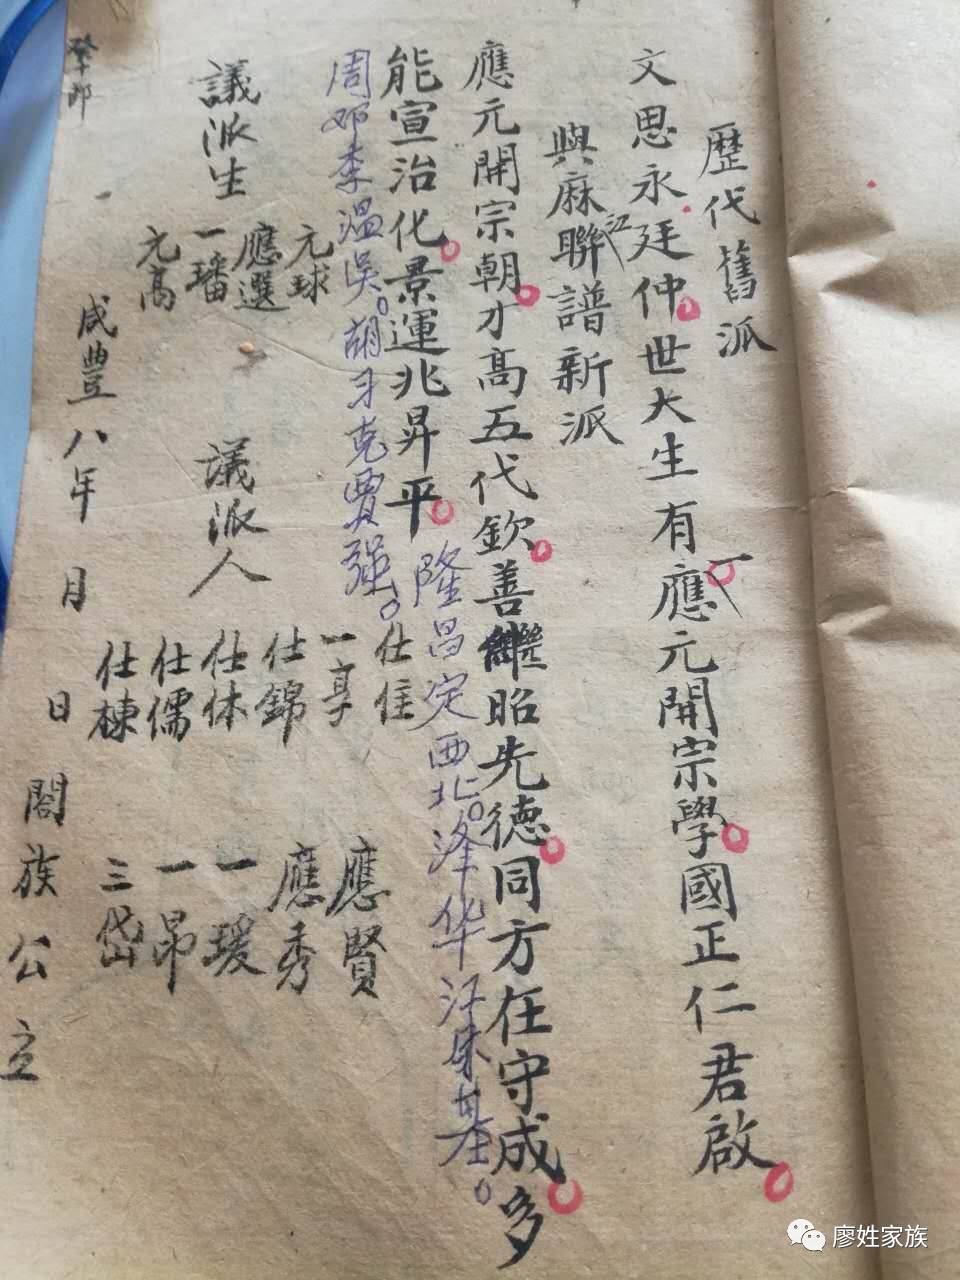 歷代舊派
文思永廷仲。世大生有一應元開宗學。國正仁君啟。
與麻江聯譜新派
應元開宗朝。才高五代欽。善繼昭先德。同方在守成。多
能宣治化。景運兆昇平。
隆昌定西北。泽华江泉基。
周邓李温吴。胡习克贾强。
議派生
元球
應選
一璠
元高
議派人
仕住
一享
仕錦
仕体
仕儒
仕棟
應賢
應秀
一瑗
一昂
三岱
咸豐八年 月 日 閤族公立
廖姓家族